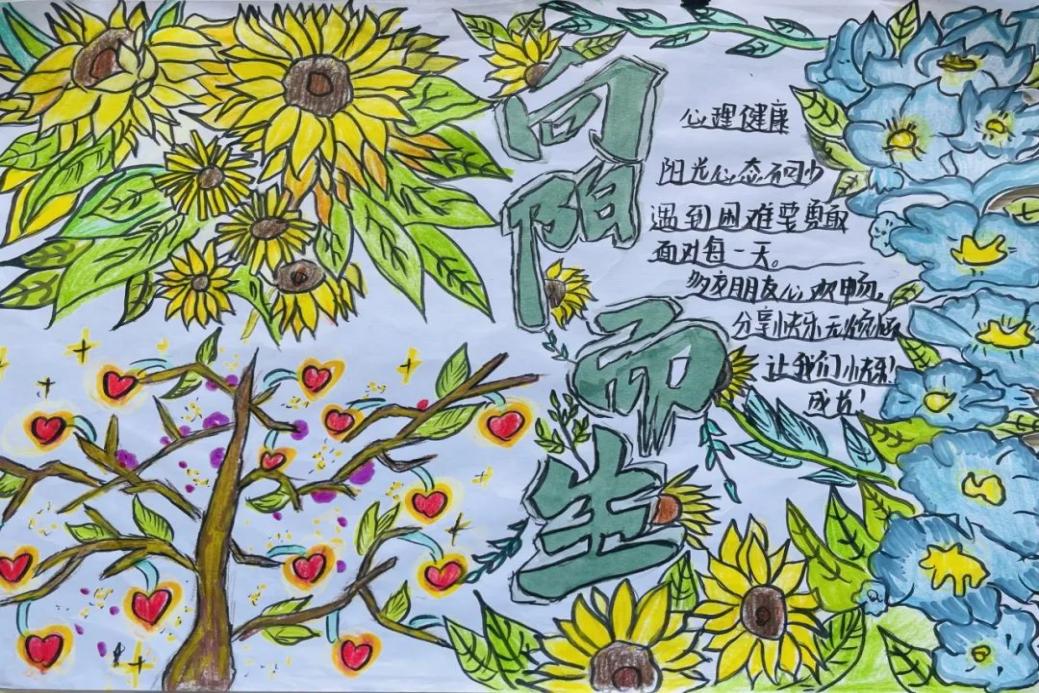 向阳而生
心理健康
阳光心态不可少
遇到困难要勇敢
面对每一天。
多交朋友心欢畅，
分享快乐无烦恼
让我们快乐!
成长!